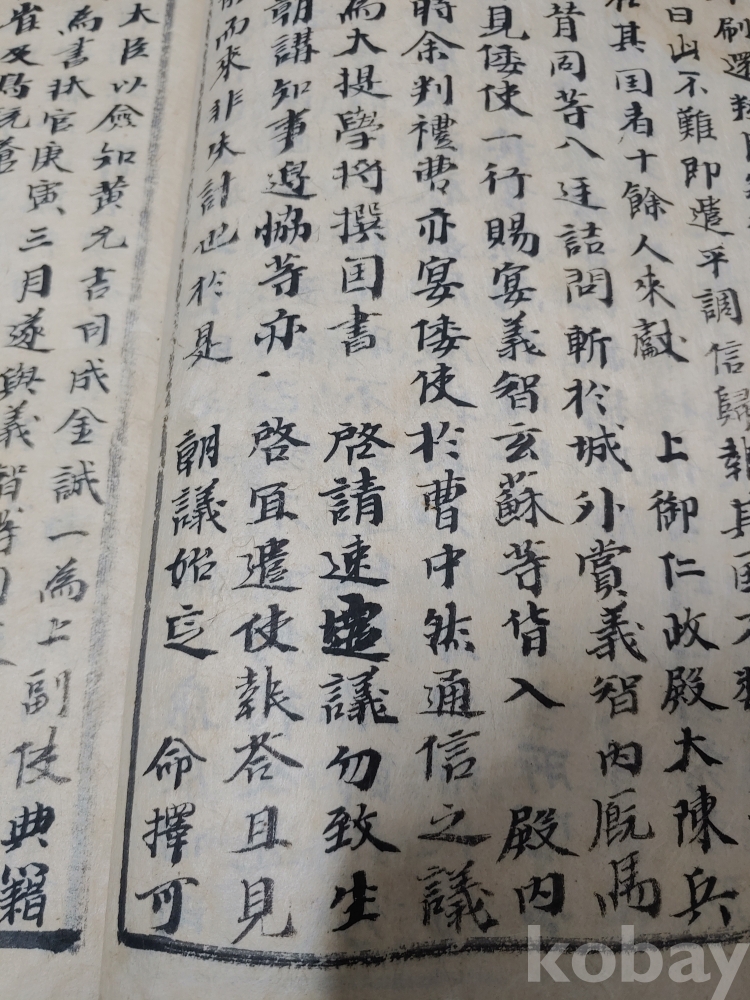 刷還
不難即遣平調信歸報其国不
其国者十餘人來獻 上御仁政殿大陳兵
昔同等入廷詰問斬於城外賞義智內廐馬
見倭使一行賜宴義智玄蘇等皆入 殿內
時余判禮曹亦宴倭使於曹中然通信之議
為大提學將撰国書 啓請速議勿致生
朝講知事邊協等亦 啓宜遣使報答且見
而來非失計也於是 朝議始定 命擇可
大臣以僉知黃允吉司成金誠一為上副使典籍
為書狀官庚寅三月遂與義智等同
kobay